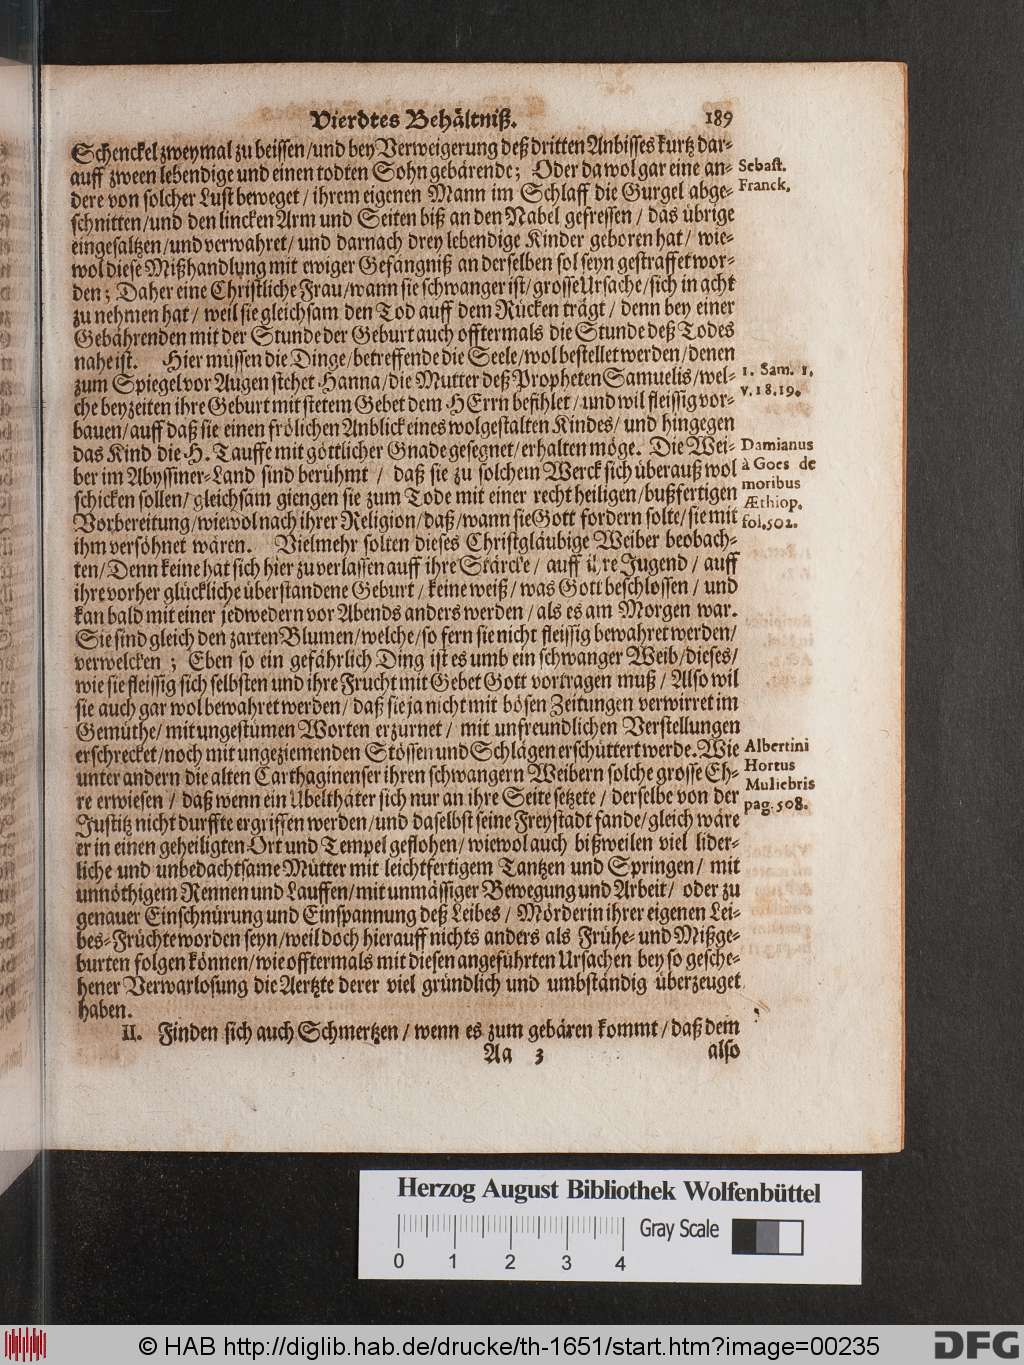 Vierdtes Behältniß. 189
Schenckel zweymal zu beissen/und bey Verweigerung deß dritten Anbisses kurtz dar-
auff zween lebendige und einen todten Sohn gebärende; Oder da wol gar eine an-
dere von solcher Lust beweget/ ihrem eigenen Mann im Schlaff die Gurgel abge-
schnitten/und den lincken Arm und Seiten biß an den Nabel gefressen/ das übrige
eingesaltzen/und verwahret/ und darnach drey lebendige Kinder geboren hat/ wie-
wol diese Mißhandlung mit ewiger Gefängniß an derselben sol seyn gestraffet wor-
den; Daher eine Christliche Frau/wann sie schwanger ist/ grosse Ursache/sich in acht
zu nehmen hat/ weil sie gleichsam den Tod auff dem Rücken trägt/ denn bey einer
Gebährenden mit der Stunde der Geburt auch offtermals die Stunde deß Todes
nahe ist. Hier müssen die Dinge/betreffende die Seele/wol bestellet werden/denen
zum Spiegel vor Augen stehet Hanna/die Mutter deß Propheten Samuelis/wel-
che beyzeiten ihre Geburt mit stetem Gebet dem HErrn befihlet/und wil fleissig vor-
bauen/auff daß sie einen frölichen Anblick eines wolgestalten Kindes/ und hingegen
das Kind die H. Tauffe mit göttlicher Gnade gesegnet/erhalten möge. Die Wei-
ber im Abyssiner-Land sind berühmt/ daß sie zu solchem Werck sich überauß wol
schicken sollen/gleichsam giengen sie zum Tode mit einer recht heiligen/bußfertigen
Vorbereitung/wiewol nach ihrer Religion/daß/wann sie Gott fordern solte/sie mit
ihm versöhnet wären. Vielmehr solten dieses Christgläubige Weiber beobach-
ten/Denn keine hat sich hier zu verlassen auff ihre Stärcke/ auff ihre Jugend/ auff
ihre vorher glückliche überstandene Geburt/ keine weiß/ was Gott beschlossen/ und
kan bald mit einer jedwedern vor Abends anders werden/ als es am Morgen war.
Sie sind gleich den zarten Blumen/welche/so fern sie nicht fleissig bewahret werden/
verwelcken; Eben so ein gefährlich Ding ist es umb ein schwanger Weib/dieses/
wie sie fleissig sich selbsten und ihre Frucht mit Gebet Gott vortragen muß/ Also wil
sie auch gar wol bewahret werden/ daß sie ja nicht mit bösen Zeitungen verwirret im
Gemüthe/ mit ungestümen Worten erzürnet/ mit unfreundlichen Verstellungen
erschrecket/noch mit ungeziemenden Stössen und Schlägen erschüttert werde. Wie
unter andern die alten Carthaginenser ihren schwangern Weibern solche grosse Eh-
re erwiesen/ daß wenn ein Übelthäter sich nur an ihre Seite setzete/ derselbe von der
Justitz nicht durffte ergriffen werden/und daselbst seine Freystadt fande/gleich wäre
er in einen geheiligten Ort und Tempel geflohen/ wiewol auch bißweilen viel lider-
liche und unbedachtsame Mütter mit leichtfertigem Tantzen und Springen/ mit
unnöthigem Rennen und Lauffen/mit unmässiger Bewegung und Arbeit/ oder zu
genauer Einschnürung und Einspannung deß Leibes/ Mörderin ihrer eigenen Lei-
bes-Früchte worden seyn/weil doch hierauff nichts anders als Frühe- und Mißge-
burten folgen können/wie offtermals mit diesen angeführten Ursachen bey so gesche-
hener Verwarlosung die Aertzte derer viel gründlich und umbständig überzeuget
haben.
II. Finden sich auch Schmertzen/ wenn es zum gebären kommt/ daß dem
Aa 3 also
Sebast.
Franck.
1. Sam. 1.
v. 18.19.
Damianus
à Goes de
moribus
Æthiop.
fol. 502.
Albertini
Hortus
Muliebris
pag. 508.
Herzog August Bibliothek Wolfenbüttel
Gray Scale
0 1 2 3 4
© HAB http://diglib.hab.de/drucke/th-1651/start.htm?image=00235
DFG